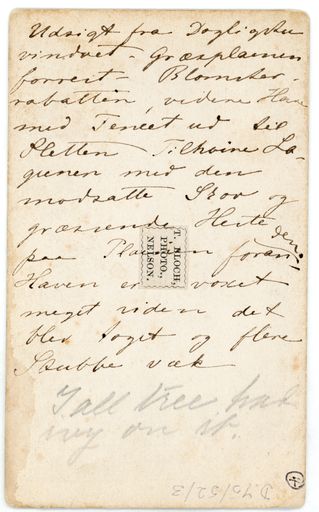 Udsigt fra Dagligstue
vinduet - Græsplænen
forrest - Blomster-
rabatten, videre Have
med Fencet ud til
Sletten Tilhoire La-
gunen med den
modsatte Skov og
græssende Heste
paa Pladsen foran den.
Haven er voxet
meget siden det
blev taget og flere
Stubbe væk
T. BLOCH,
PHOTO.,
NELSON.
Tall tree has
ivy on it.
D.75/52/3